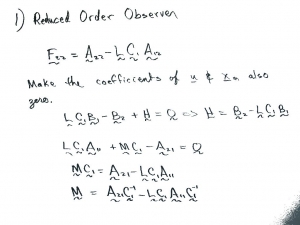 1) Reduced Order Observer
F₂₂ = A₂₂ - L C₁ A₁₂
Make the coefficients of u & x₁ also
zero.
L C₁ B₁ - B₂ + H = 0 <=> H = B₂ - L C₁ B₁
L C₁ A₁₁ + M C₁ - A₂₁ = 0
M C₁ = A₂₁ - L C₁ A₁₁
M = A₂₁ C₁⁻¹ - L C₁ A₁₁ C₁⁻¹